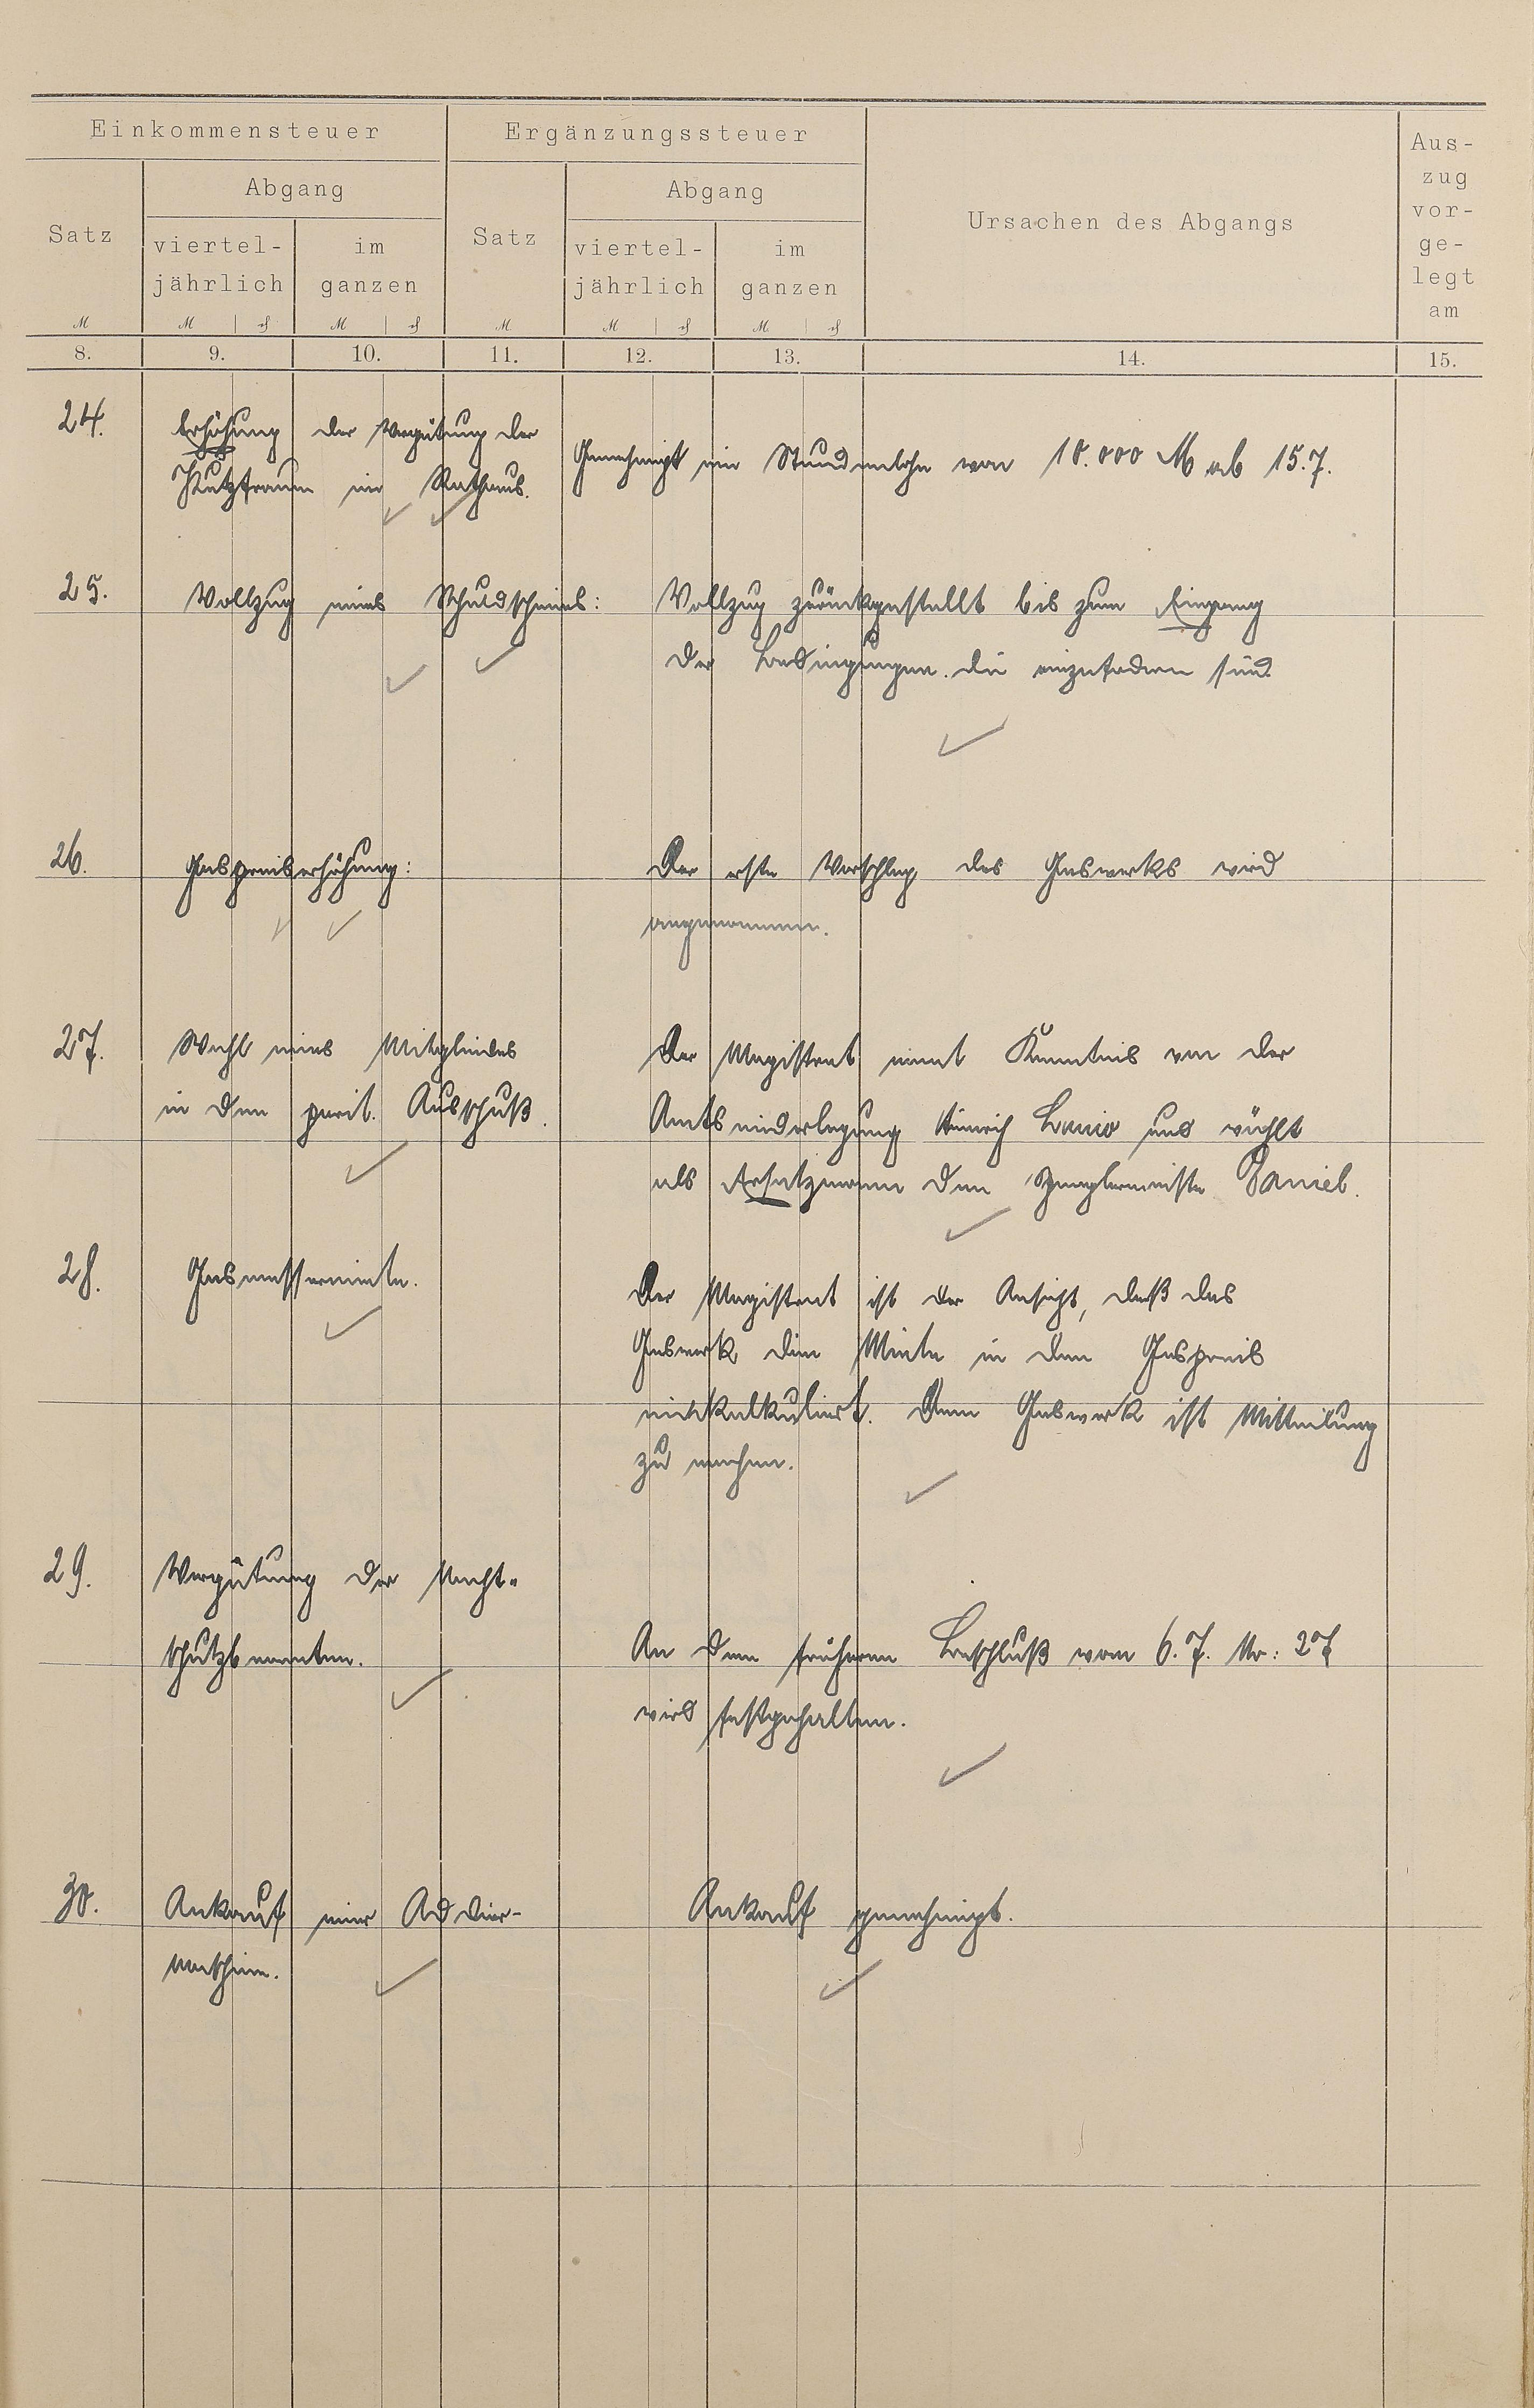 Einkommensteuer
Ergänzungssteuer
Ursachen des Abgangs
Aus-
zug
vor-
ge-
legt
am
Satz
Abgang
Satz
Abgang
viertel-
jährlich
im
ganzen
viertel-
jährlich
im
ganzen
M
M
₰
M
₰
M
M
₰
M
₰
8.
9.
10.
11.
12.
13.
14.
15.
24.
Erhöhung der Vergütung der
Putzfrauen im Rathaus.
Genehmigt ein Stundenlohn von 10.000 M ab 15.7.
25.
Vollzug eines Schuldscheines:
Vollzug zurückgestellt bis zum Eingang
der Bedingungen. die einzufordern sind.
26.
Gaspreiserhöhung:
Der erste Vorschlag des Gaswerks wird
angenommen.
27.
Wahl eines Mitgliedes
in den parit. Ausschuß.
Der Magistrat nimt Kenntnis von der
Amtsniederlegung Heinrich und wählt
als Ersatzmann den Spenglermeister Daniel.
28.
Gasmessermiete.
Der Magistrat ist der Ansicht, daß das
Gaswerk die Miete in den Gaspreis
einkalkuliert. Dem Gaswerk ist Mitteilung
zu machen.
29.
Vergütung der Nacht-
schutzbeamten.
An dem früheren Beschluß vom 6.7. Nr: 27
wird festgehalten.
30.
Ankauf einer Addier-
maschine.
Ankauf genehmigt.